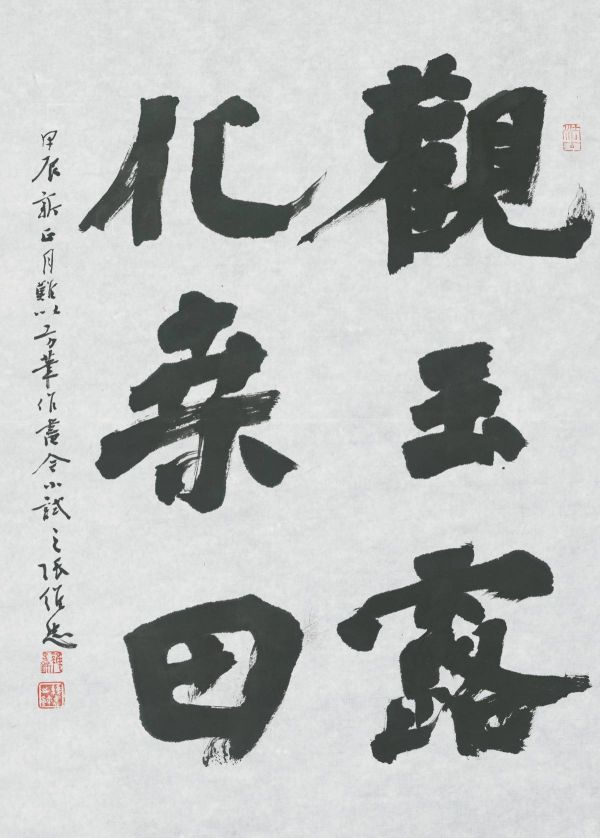 觀玉露
化桑田
甲辰新正月難以方筆作書今小試之張作忠